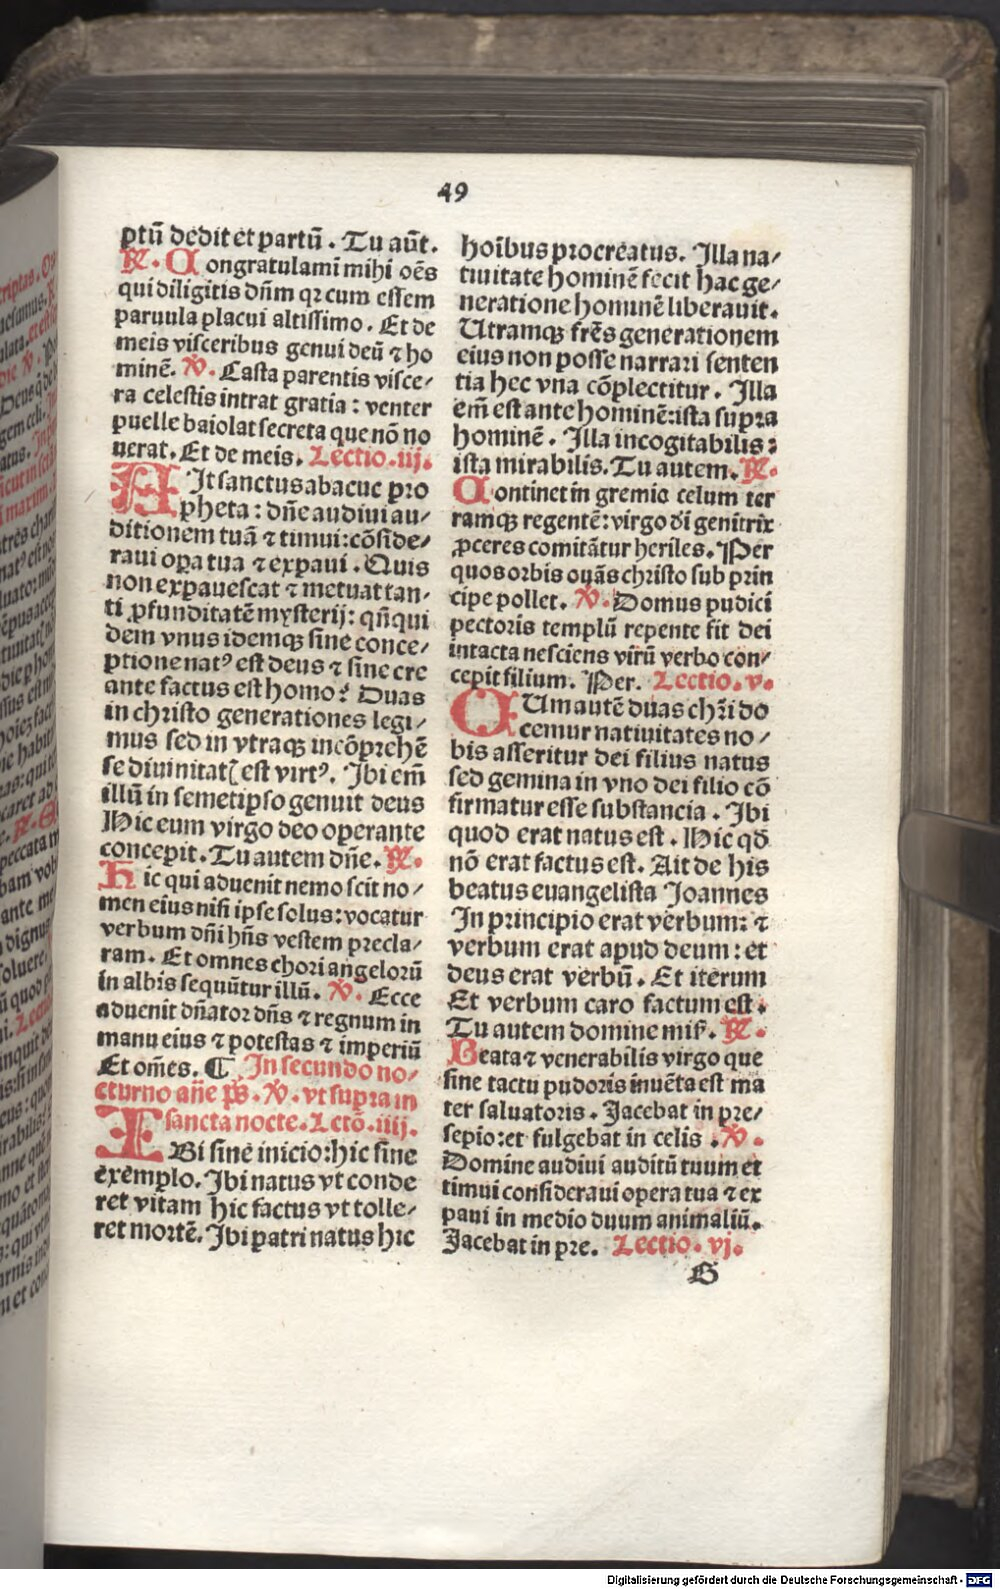 49
ptū dedit et partū. Tu aūt.
℟. Congratulamī mihi oēs
qui diligitis dn̄m qꝛ cum essem
paruula placui altissimo. Et de
meis visceribus genui deū ⁊ ho
minē. ℣. Casta parentis visce/
ra celestis intrat gratia: venter
puelle baiolat secreta que nō no
uerat. Et de meis. Lectio.iij.
AIt sanctus abacuc pro
pheta: dn̄e audiui au/
ditionem tuā ⁊ timui: cōside/
raui oꝑa tua ⁊ expaui. Quis
non expauescat ⁊ metuat tan/
ti ꝓfunditatē mysterij: qn̄qui
dem vnus idemqꝫ sine conce/
ptione natꝰ est deus ⁊ sine cre
ante factus est homo? Duas
in christo generationes legi/
mus sed in vtraqꝫ incōprehē
se diuinitatꝭ est virtꝰ. Ibi em̄
illū in semetipso genuit deus
Hic eum virgo deo operante
concepit. Tu autem dn̄e. ℟.
Hic qui aduenit nemo scit no/
men eius nisi ipse solus: vocatur
verbum dn̄i hn̄s vestem precla/
ram. Et omnes chori angelorū
in albis sequūtur illū. ℣. Ecce
aduenit dn̄ator dn̄s ⁊ regnum in
manu eius ⁊ potestas ⁊ imperiū
Et om̄es. ¶ In secundo no/
cturno an̄e ps̄. ℣. vt supra in
sancta nocte. Lctō.iiij.
IBi sine inicio: hic sine
exemplo. Ibi natus vt conde
ret vitam hic factus vt tolle/
ret mortē. Ibi patri natus hic
hoībus procreatus. Illa na/
tiuitate hominē fecit hac ge/
neratione hominē liberauit.
Utramqꝫ frēs generationem
eius non posse narrari senten
tia hec vna cōplectitur. Illa
em̄ est ante hominē: ista supra
hominē. Illa incogitabilis:
ista mirabilis. Tu autem. ℟.
Continet in gremio celum ter
ramqꝫ regentē: virgo di genitrix
ꝓceres comitātur heriles. Per
quos orbis ouās christo sub prin
cipe pollet. ℣. Domus pudici
pectoris templū repente fit dei
intacta nesciens virū verbo con/
cepit filium. Per. Lectio.v.
CUm autē duas chr̄i do
cemur natiuitates no/
bis asseritur dei filius natus
sed gemina in vno dei filio cō
firmatur esse substancia. Ibi
quod erat natus est. Hic qd̄
nō erat factus est. Ait de his
beatus euangelista Joannes
In principio erat verbum: ⁊
verbum erat apud deum: et
deus erat verbū. Et iterum
Et verbum caro factum est.
Tu autem domine mis̄. ℟.
Beata ⁊ venerabilis virgo que
sine tactu pudoris inuēta est ma
ter saluatoris. Jacebat in pre/
sepio: et fulgebat in celis. ℣.
Domine audiui auditū tuum et
timui consideraui opera tua ⁊ ex
paui in medio duum animaliū.
Jacebat in pre. Lectio.vj.
G
Digitalisierung gefördert durch die Deutsche Forschungsgemeinschaft - DFG